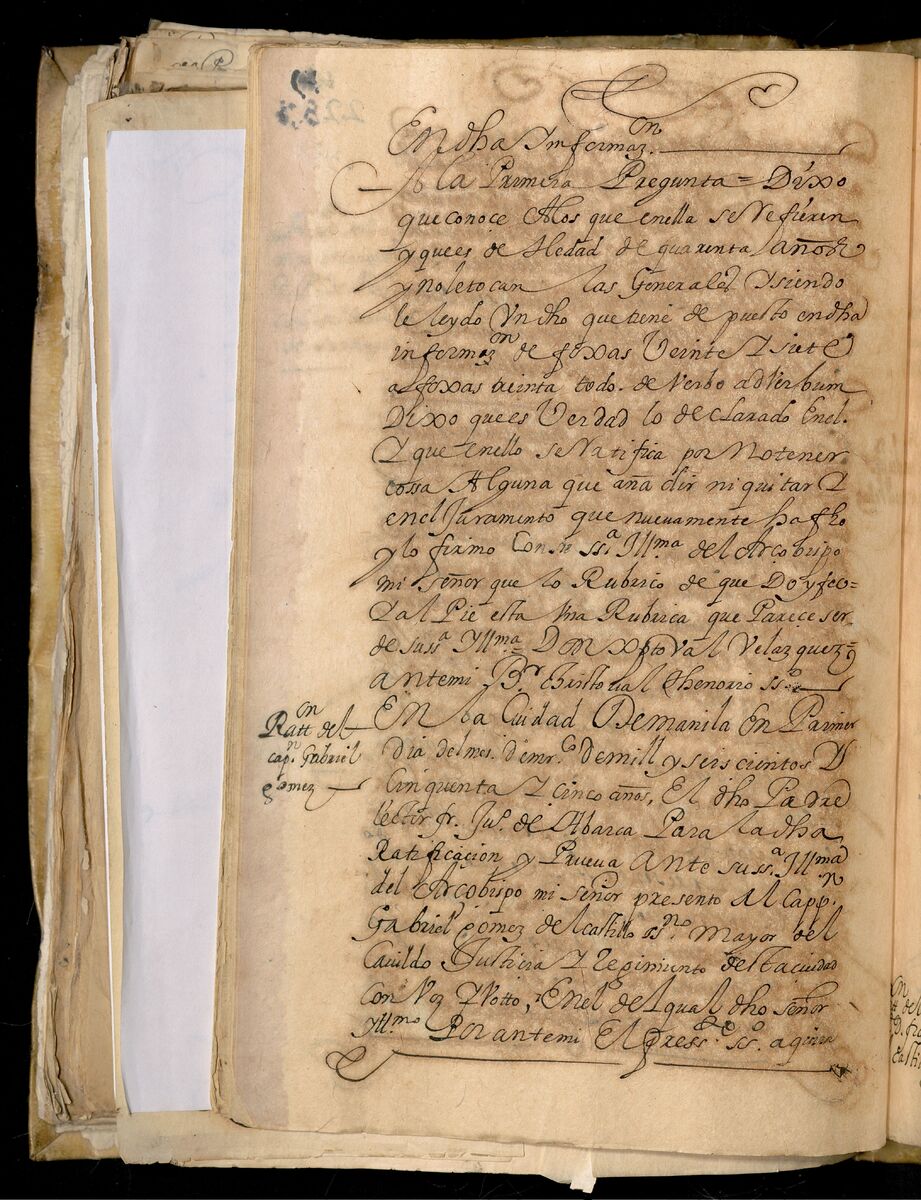 En dha Informaz.on
A la Primera Pregunta = Dixo
que conoce A los que en ella se Refieren
y que es de Hedad de quarenta años
y no le tocan las Generales Y siendo
le leydo Vn dho que tiene de puesto en dha
informaz.on de foxas Veinte Y siete
a foxas treinta todo. de Verbo adVerbum
Dixo que es Verdad lo declarado En el.
Y que en ello se Ratifica por No tener
cossa Alguna que aña dir ni quitar Y
en el Juramento que nuevamente ha fho
y lo firmo Con su ss.a Yll.ma del Arcobispo
mi señor que lo Rubrico de que Doy fee =
Y al Pie esta Vna Rubrica que Parece ser
de su ss.a Yll.ma = Don Xptoval Velazquez =
ante mi Br. Christoual Thenorio ss.o
Ratt.on del
cap.n Gabriel
gomez
En la Ciudad De manila En Primer
Dia del mes. D. mr.e De mill y seiscientos Y
Cinquenta Y cinco años, El dho Padre
lector fr. Ju.o de Abarca Para la dha
Ratificacion y Prueva Ante su ss.a Yll.ma
del Arcobispo mi señor presento Al Capp.n
Gabriel gomez del castillo ss.no Mayor del
Cavildo Justicia Y Regimiento desta ciudad
Con Voz Y Votto, En el del qual dho señor
Yll.mo Por ante mi El press.te ss.o